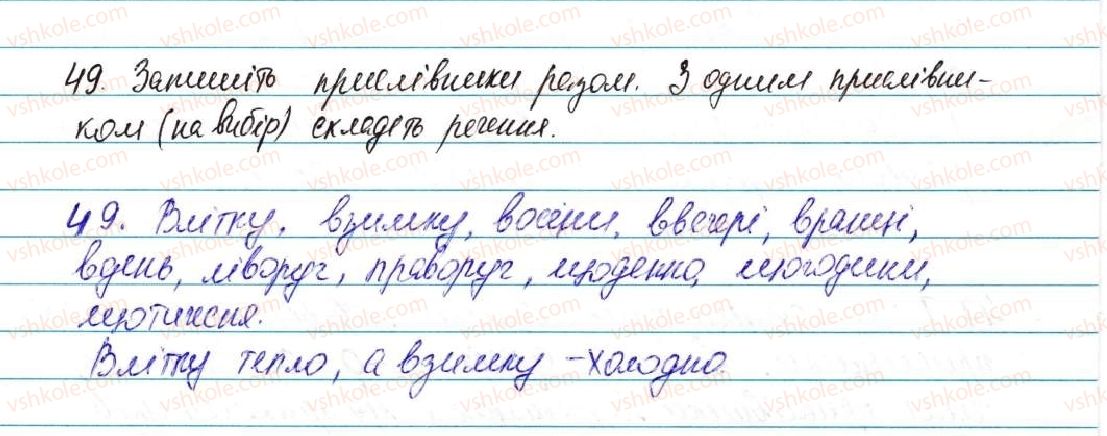 49. Запишіть прислівники разом. З одним прислівни-
ком (на вибір) складеть речення.
49. Влітку, взимку, восени, ввечері, вранці,
вдень, ліворуч, праворуч, щоденно, щогодини,
щотижня.
Влітку тепло, а взимку - холодно